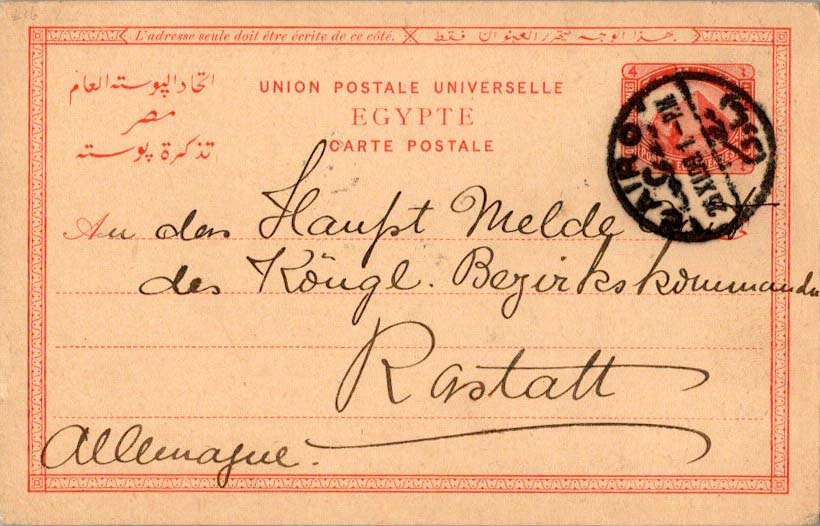 L'adresse seule doit être écrite de ce côté. بهذا الوجه يتحرر العنوان فقط
اتحاد البوسته العام
مصر
تذكرة بوسته
UNION POSTALE UNIVERSELLE
EGYPTE
CARTE POSTALE
4
CAIRO
An das Haupt Melde
des Köngl. Bezirkskommando
Rastatt
Allemagne.